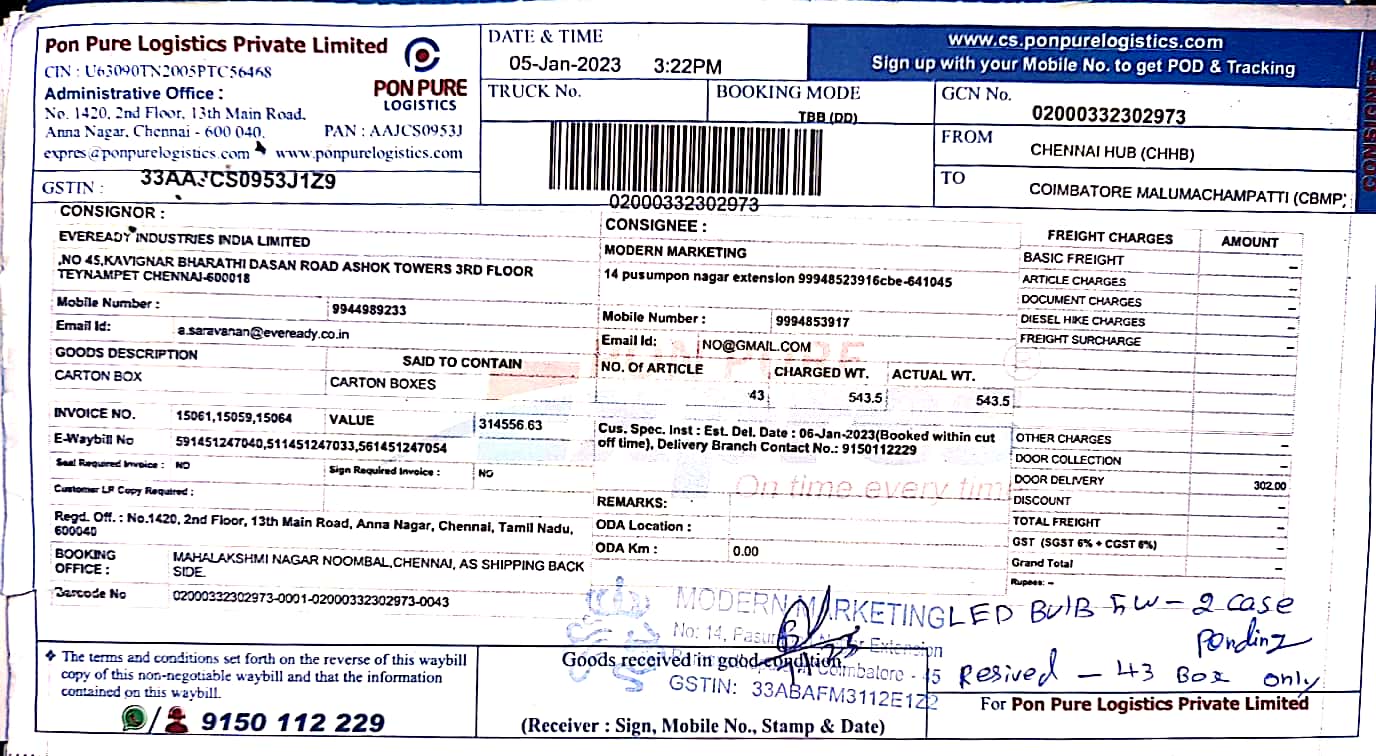 Pon Pure Logistics Private Limited
CIN : U63090TN2005PTC56468
Administrative Office :
No. 1420, 2nd Floor, 13th Main Road,
Anna Nagar, Chennai - 600 040. PAN : AAJCS0953J
expres@ponpurelogistics.com www.ponpurelogistics.com
PON PURE
LOGISTICS
GSTIN : 33AAJCS0953J1Z9
DATE & TIME
05-Jan-2023 3:22PM
TRUCK No.
BOOKING MODE
TBB (DD)
02000332302973
www.cs.ponpurelogistics.com
Sign up with your Mobile No. to get POD & Tracking
GCN No.
02000332302973
FROM
CHENNAI HUB (CHHB)
TO
COIMBATORE MALUMACHAMPATTI (CBMP)
CONSIGNEE
CONSIGNOR :
EVEREADY INDUSTRIES INDIA LIMITED
,NO 45,KAVIGNAR BHARATHI DASAN ROAD ASHOK TOWERS 3RD FLOOR
TEYNAMPET CHENNAI-600018
Mobile Number : 9944989233
Email Id: a.saravanan@eveready.co.in
GOODS DESCRIPTION SAID TO CONTAIN
CARTON BOX CARTON BOXES
INVOICE NO. 15061,15059,15064 VALUE 314556.63
E-Waybill No 591451247040,511451247033,561451247054
Seal Required Invoice : NO Sign Required Invoice : NO
Customer LR Copy Required :
Regd. Off. : No.1420, 2nd Floor, 13th Main Road, Anna Nagar, Chennai, Tamil Nadu,
600040
BOOKING OFFICE : MAHALAKSHMI NAGAR NOOMBAL,CHENNAI, AS SHIPPING BACK
SIDE.
Barcode No 02000332302973-0001-02000332302973-0043
CONSIGNEE :
MODERN MARKETING
14 pusumpon nagar extension 99948523916cbe-641045
Mobile Number : 9994853917
Email Id: NO@GMAIL.COM
NO. Of ARTICLE CHARGED WT. ACTUAL WT.
43 543.5 543.5
Cus. Spec. Inst : Est. Del. Date : 06-Jan-2023(Booked within cut
off time), Delivery Branch Contact No.: 9150112229
On time every time
REMARKS:
ODA Location :
ODA Km : 0.00
FREIGHT CHARGES AMOUNT
BASIC FREIGHT –
ARTICLE CHARGES –
DOCUMENT CHARGES –
DIESEL HIKE CHARGES –
FREIGHT SURCHARGE –
OTHER CHARGES –
DOOR COLLECTION –
DOOR DELIVERY 302.00
DISCOUNT –
TOTAL FREIGHT –
GST (SGST 6% + CGST 6%) –
Grand Total –
Rupees: –
MODERN MARKETING
No: 14, Nagar Extension
Coimbatore - 45
GSTIN: 33ABAFM3112E1Z2
LED BulB 5W - 2 case
pending
Resived - 43 Box only
❖ The terms and conditions set forth on the reverse of this waybill
copy of this non-negotiable waybill and that the information
contained on this waybill.
9150 112 229
Goods received in good condition.
(Receiver : Sign, Mobile No., Stamp & Date)
For Pon Pure Logistics Private Limited